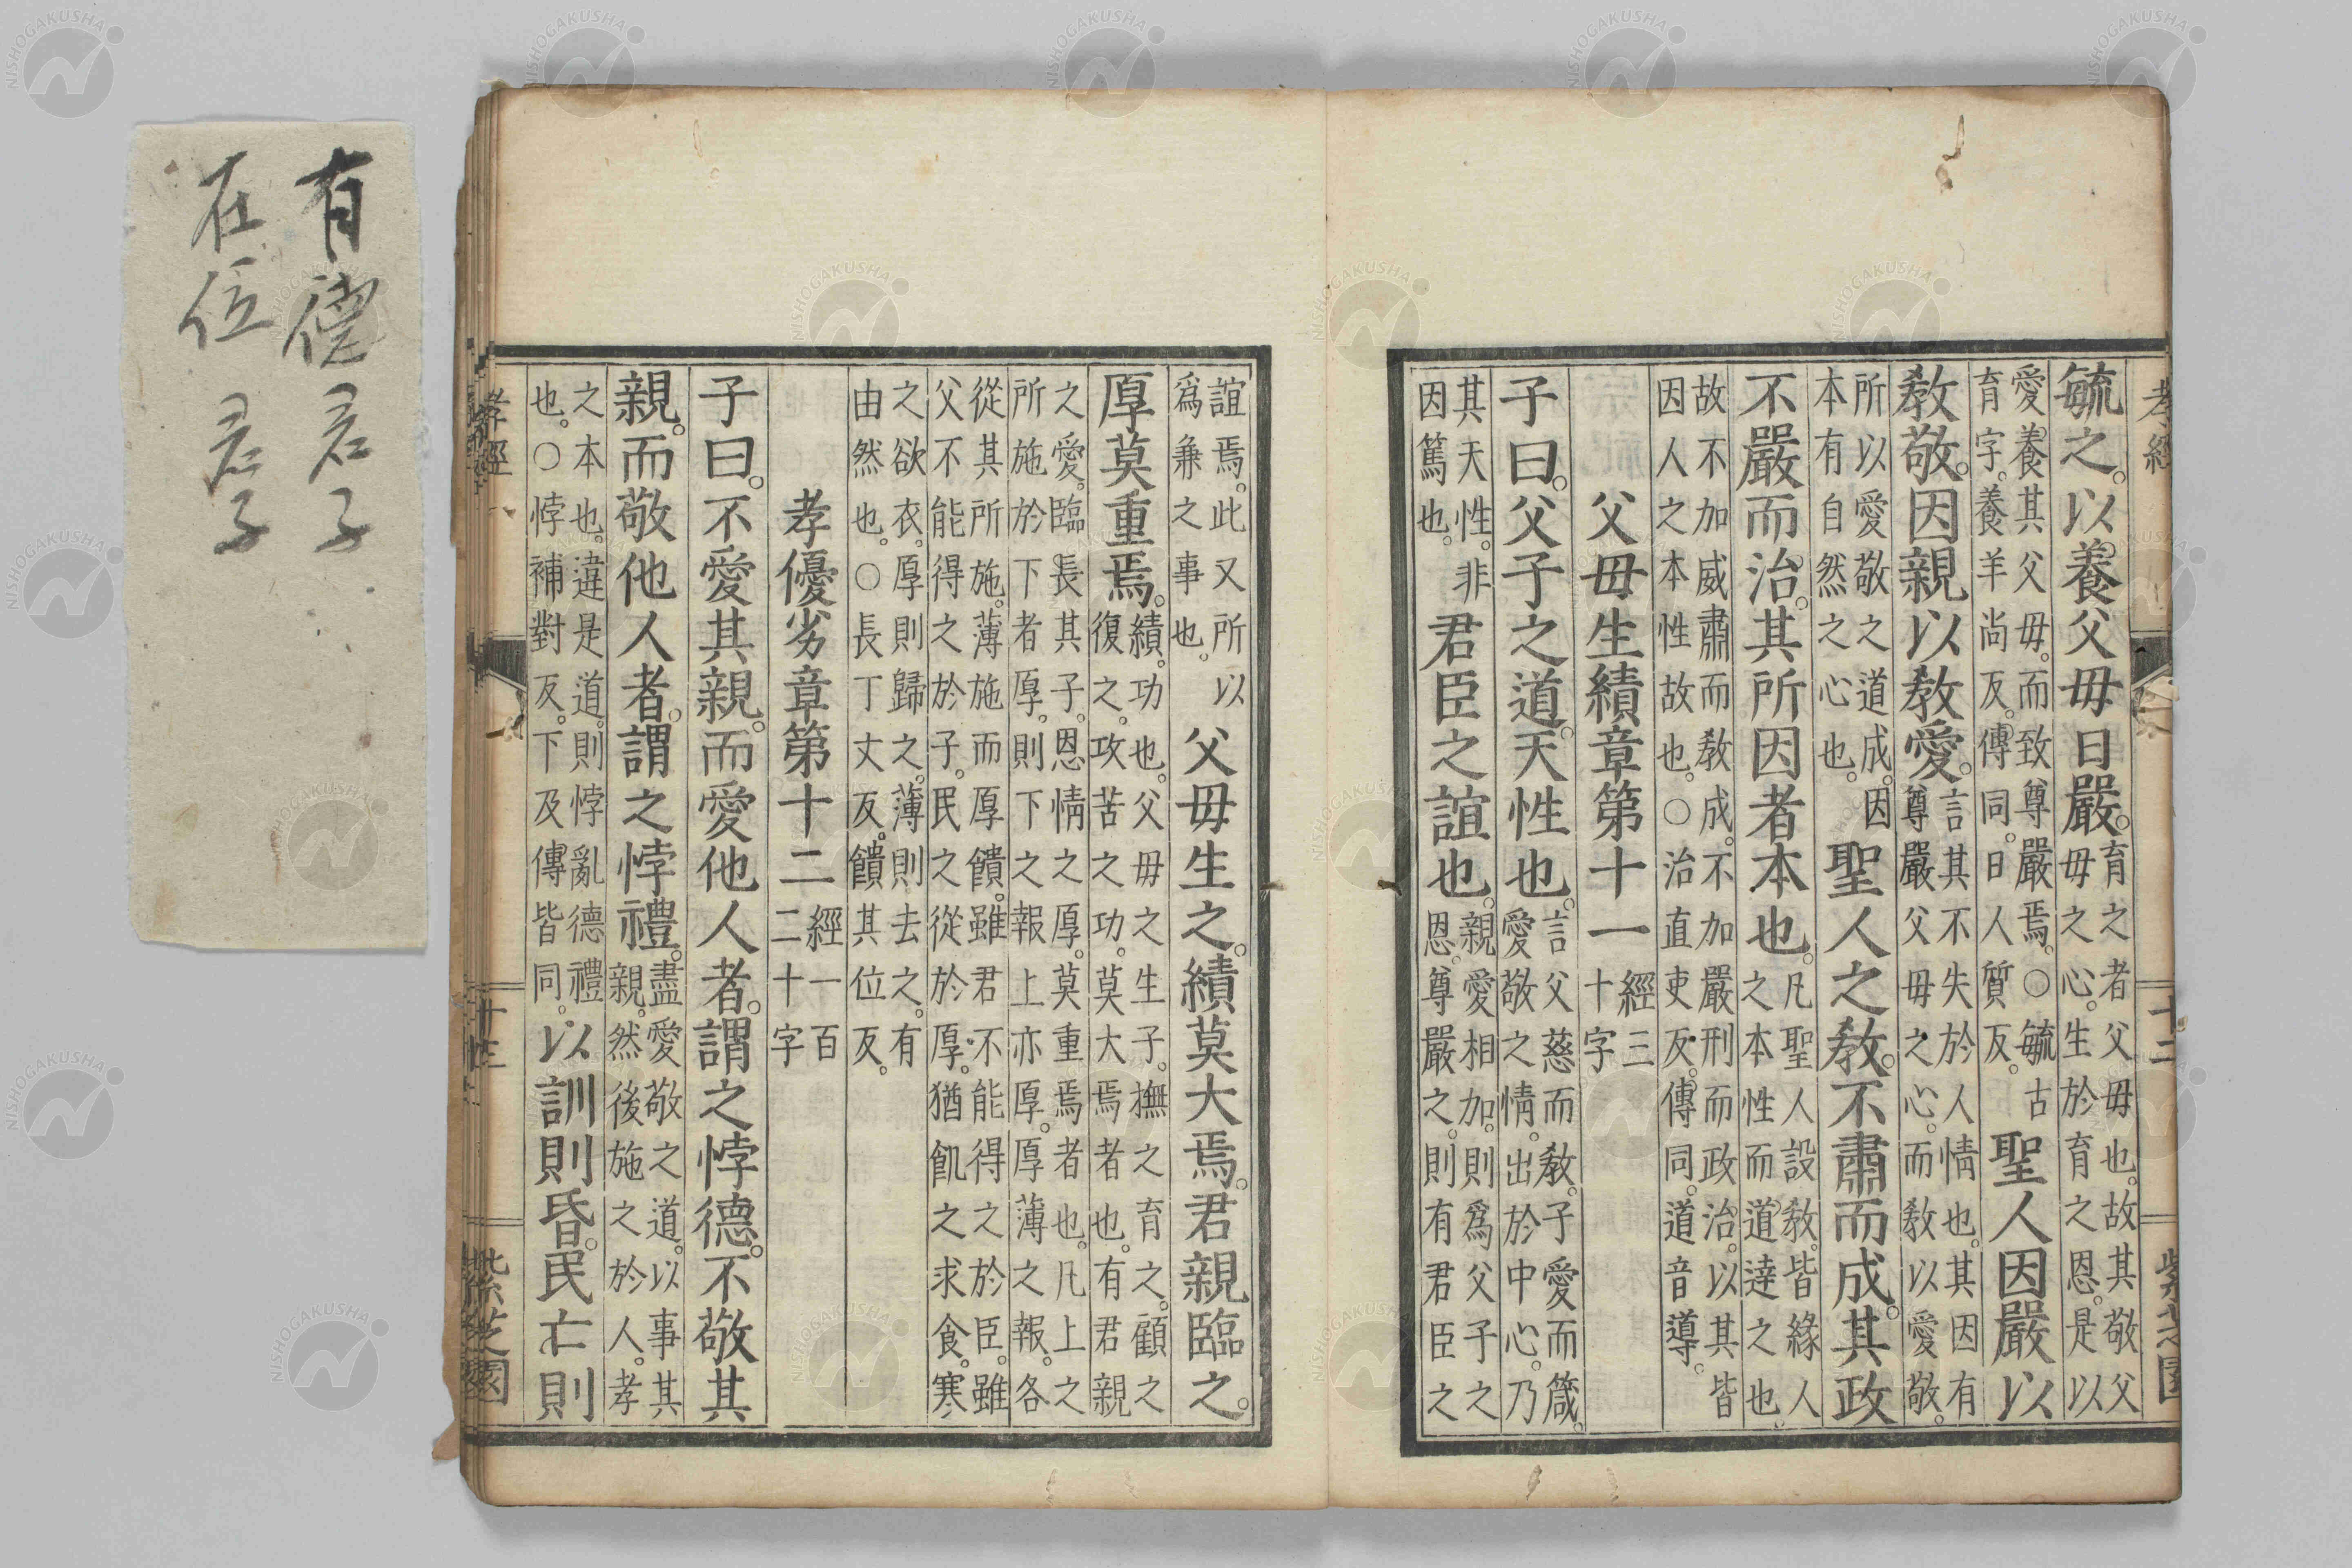 孝經 十二 紫芝園
毓之。以養父母日嚴。
育之者父母也。故其敬父
母之心。生於育之恩。是以
愛養其父母。而致尊嚴焉。○毓古
育字。養羊尚反。傳同。日人質反。
聖人因嚴以
教敬。因親以教愛。
言其不失於人情也。其因有
尊嚴父母之心。而教以愛敬。
所以愛敬之道成。因
本有自然之心也。
聖人之教。不肅而成。其政
不嚴而治。其所因者本也。
凡聖人設教。皆緣人
之本性而道達之也。
故不加威肅而教成。不加嚴刑而政治。以其皆
因人之本性故也。○治直吏反。傳同。道音導。
父母生績章第十一
經三
十字
子曰。父子之道。天性也。
言父慈而教。子愛而箴。
愛敬之情。出於中心。乃
其天性。非
因篤也。
君臣之誼也。
親愛相加。則爲父子之
恩。尊嚴之。則有君臣之
誼焉。此又所以
爲兼之事也。
父母生之。績莫大焉。君親臨之。
厚莫重焉。
績。功也。父母之生子。撫之育之。顧之
復之。攻苦之功。莫大焉者也。有君親
之愛。臨長其子。恩情之厚。莫重焉者也。凡上之
所施於下者厚。則下之報上亦厚。厚薄之報。各
從其所施。薄施而厚饋。雖君不能得之於臣。雖
父不能得之於子。民之從於厚。猶飢之求食。寒
之欲衣。厚則歸之。薄則去之。有
由然也。○長丁丈反。饋其位反。
孝優劣章第十二
經一百
二十字
子曰。不愛其親。而愛他人者。謂之悖德。不敬其
親。而敬他人者。謂之悖禮。
盡愛敬之道。以事其
親。然後施之於人。孝
之本也。違是道。則悖亂德禮
也。○悖補對反。下及傳皆同。
以訓則昏。民亡則
孝經 十三 紫芝園
有德君子
在位君子
NISHOGAKUSHA